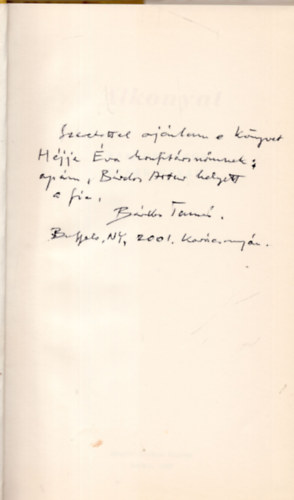 Szeretettel ajánlom e könyvet
Héjja Éva honfitársnőmnek:
apám, Bárdos Artur helyett
a fia,
Bárdos Tamás.
Buffalo, NY, 2001. Karácsonyán.